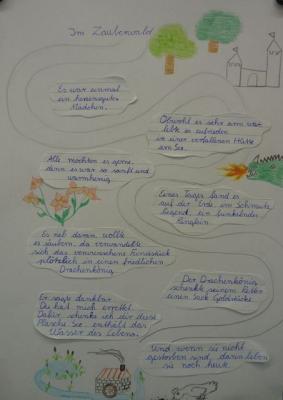 Im Zauberwald
Es war einmal
ein herzensgutes
Mädchen.
Obwohl es sehr arm war,
lebte es zufrieden
in einer verfallenen Hütte
am See.
Alle mochten es gerne,
denn es war so sanft und
warmherzig
Eines Tages fand es
auf der Erde im Schmutz
liegend, ein funkelndes
Ringlein
Es rieb daran, wollte
es säubern, da verwandelte
sich das verwunschene Fundstück
plötzlich in einen friedlichen
Drachenkönig
Der Drachenkönig
schenkte seinem Retter
einen Sack Goldstücke.
Er sagte dankbar
Du hast mich errettet.
Dafür schenke ich dir diese
Flasche. Sie enthält das
Wasser des Lebens.
Und wenn sie nicht
gestorben sind, dann leben
sie noch heute.